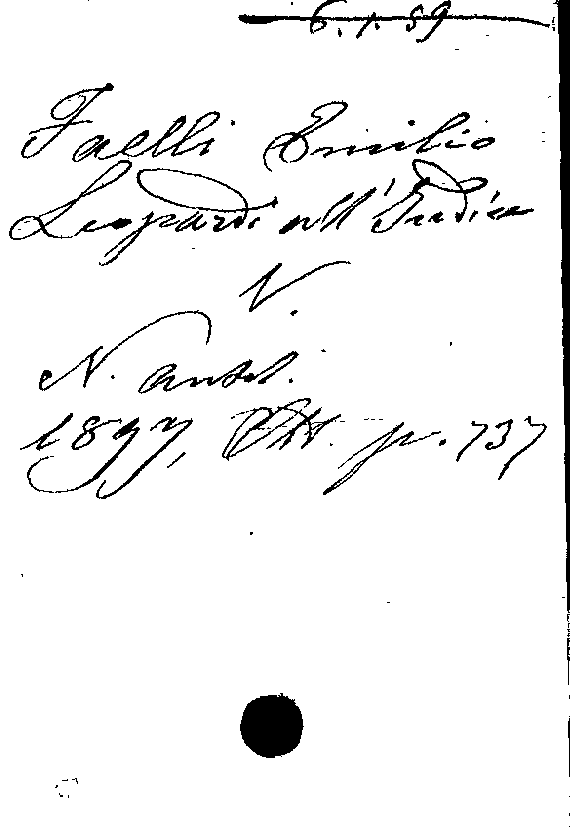 6.1.89
Faelli Emilio
Leopardi all'Indice
V.
N. antol.
1897, Ott. p. 737